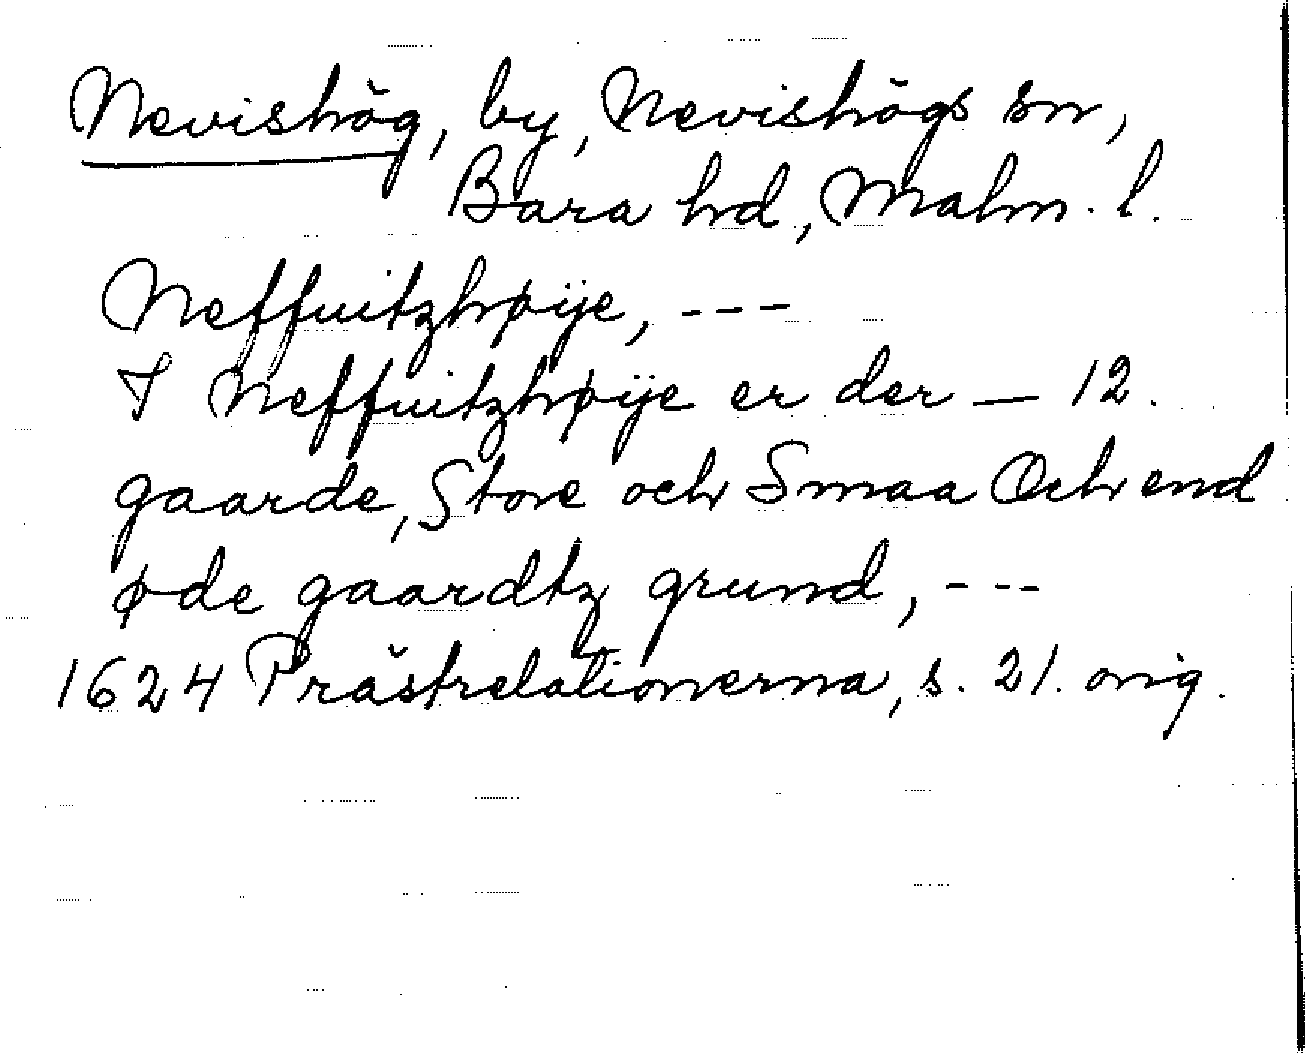 Nevishög, by, Nevishögs sn,
Bara hd, Malm. l.
Neffuitzhøÿe, ---
I Neffuitzhøÿe er der — 12.
gaarde, Store och Smaa Och end
øde gaardtz grund, ---
1624 Prästrelationerna, s. 21. orig.